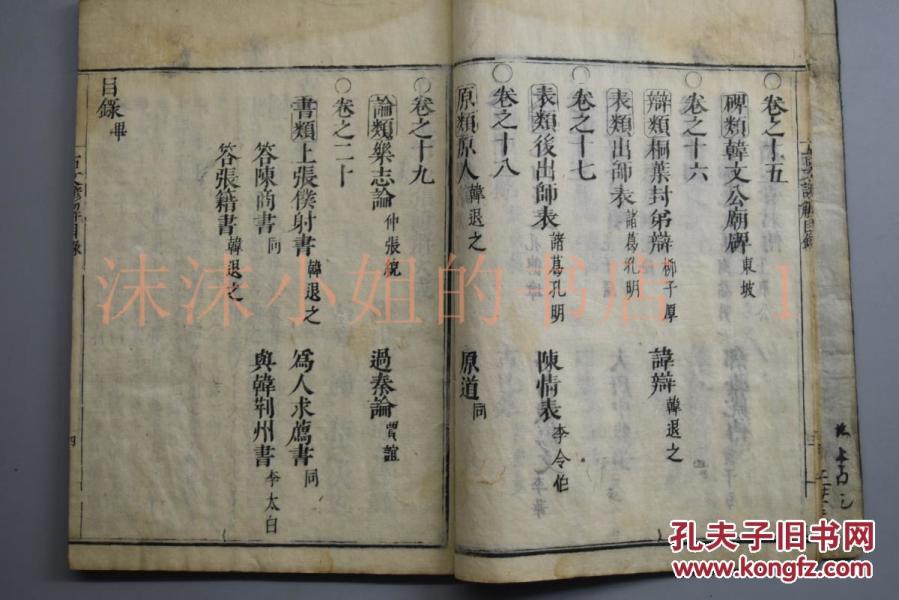 ○卷之十五
碑類韓文公廟碑 東坡
○卷之十六
辯類桐葉封弟辯 柳子厚 諱辯 韓退之
表類出師表 諸葛孔明
○卷之十七
表類後出師表 諸葛孔明 陳情表 李令伯
○卷之十八
原類原人 韓退之 原道 同
○卷之十九
論類樂志論 仲長統 過秦論 賈誼
○卷之二十
書類上張僕射書 韓退之 爲人求薦書 同
答陳商書 同 與韓荆州書 李太白
答張籍書 韓退之
目錄畢
四
沫沫小姐的书店
孔夫子旧书网
www.kongfz.com